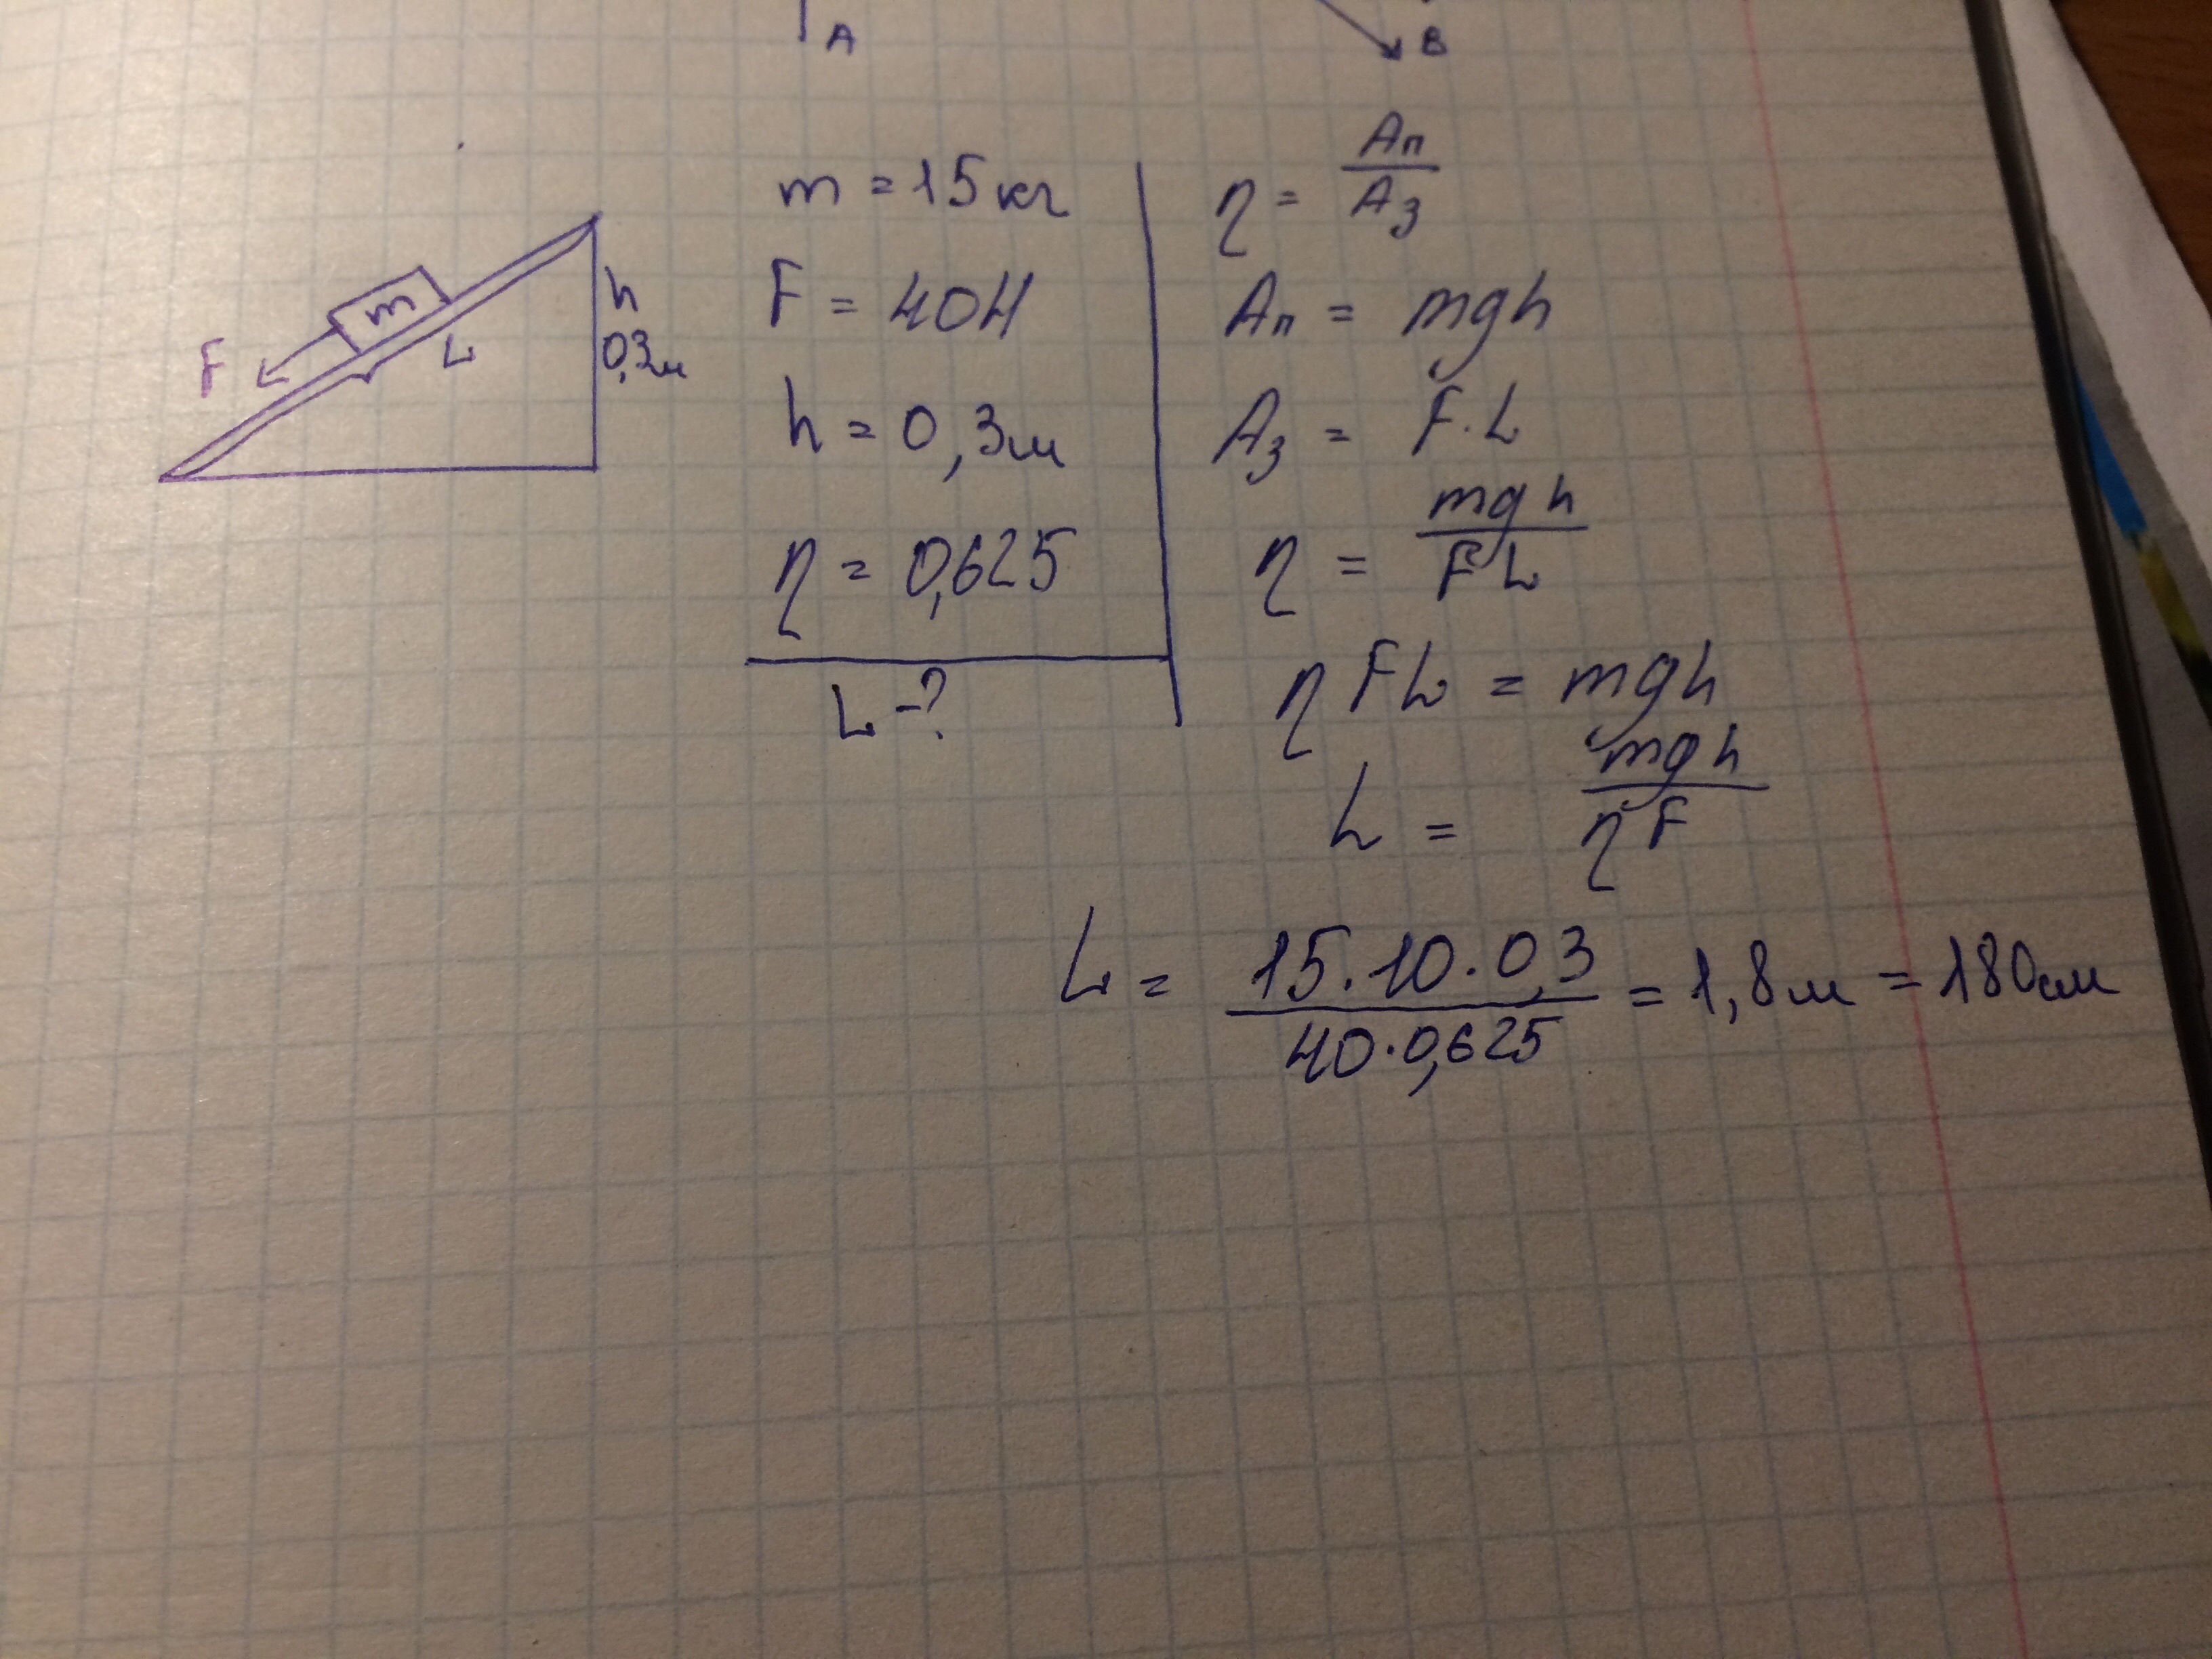 A
B
m
F
L
h
0,3м
m = 15 кг
F = 40Н
h = 0,3м
η = 0,625
L - ?
η = Aп/Aз
Aп = mgh
Aз = F · L
η = mgh/FL
η FL = mgh
L = mgh/ηF
L = 15 · 10 · 0,3/40 · 0,625 = 1,8м = 180см